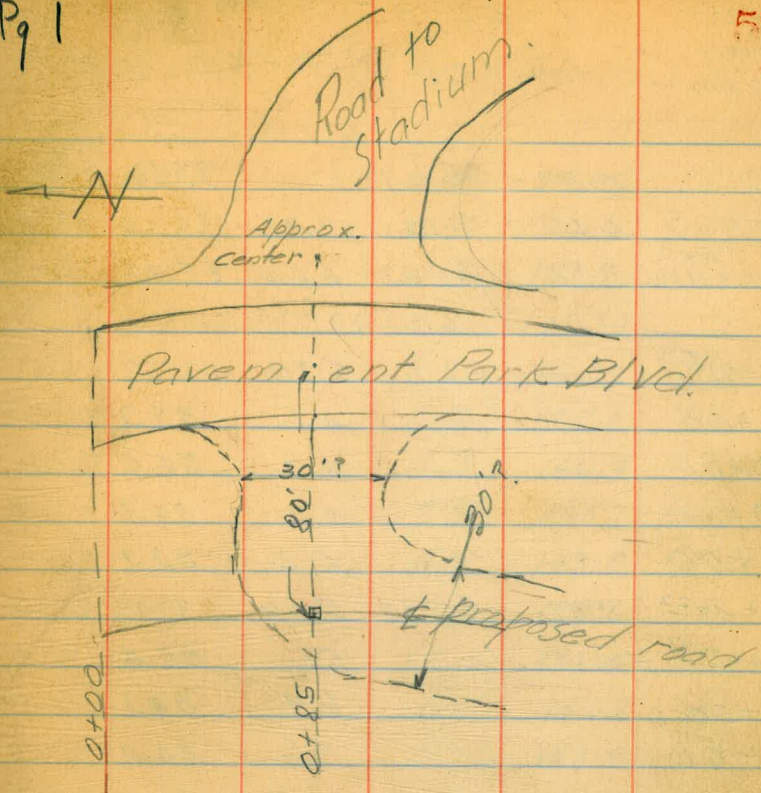 Pg 1
5
Road to
Stadium.
N
Approx.
Center
Pavement Park Blvd.
30'?
80'
30'?
℄ proposed road
0+00
0+85